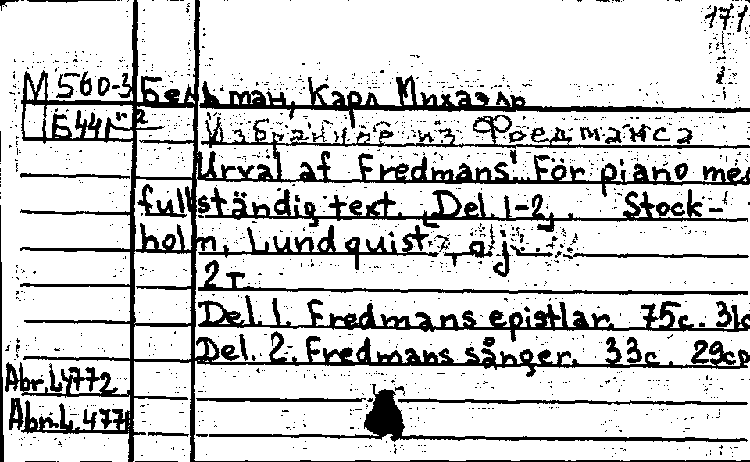 171
М 560-3 Бельман, Карл Михаэль
Избранное из Фредманса
Urval af Fredmans. För piano med
fullständig text. Del. 1-2. Stock-
holm, Lundquist,
2 т.
Del. 1. Fredmans epistlar. 75с.
Del. 2. Fredmans sånger. 33с. 29см
Abr.L4772
Abr.L.4771